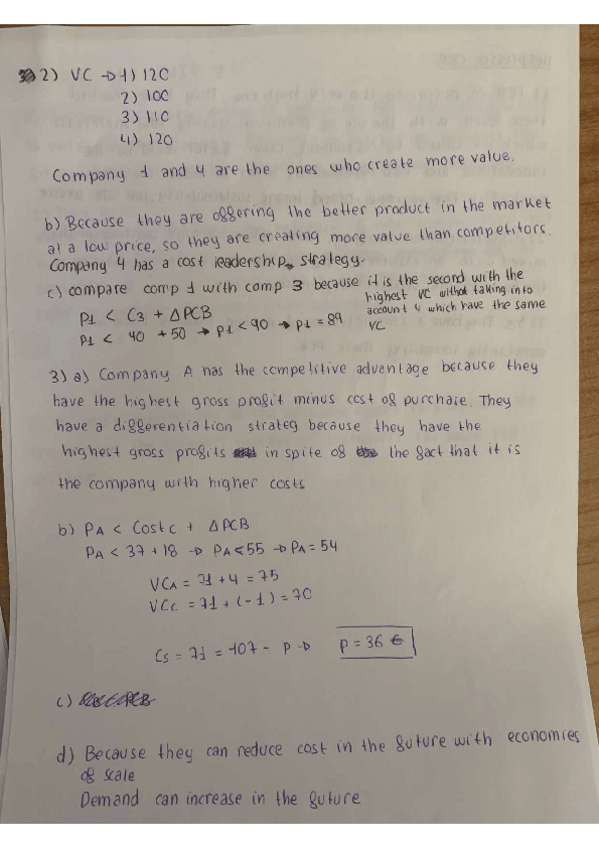 2) VC → 1) 120
2) 100
3) 110
4) 120
Company 1 and 4 are the ones who create more value.
b) Because they are offering the better product in the market
at a low price, so they are creating more value than competitors.
Company 4 has a cost leadership strategy.
c) compare comp 1 with comp 3 because it is the second with the
highest VC without taking into
account 4 which have the same
VC
P1 < C3 + ΔPCB
P1 < 40 + 50 → P1 < 90 → P1 = 89
3) a) Company A has the competitive advantage because they
have the highest gross profit minus cost of purchase. They
have a differentiation strateg because they have the
highest gross profits in spite of the fact that it is
the company with higher costs
b) PA < Cost c + ΔPCB
PA < 37 + 18 → PA < 55 → PA = 54
VCA = 71 + 4 = 75
VCc = 71 + (-1) = 70
Cs = 71 = 107 - P → P = 36 €
c)
d) Because they can reduce cost in the future with economies
of scale
Demand can increase in the future